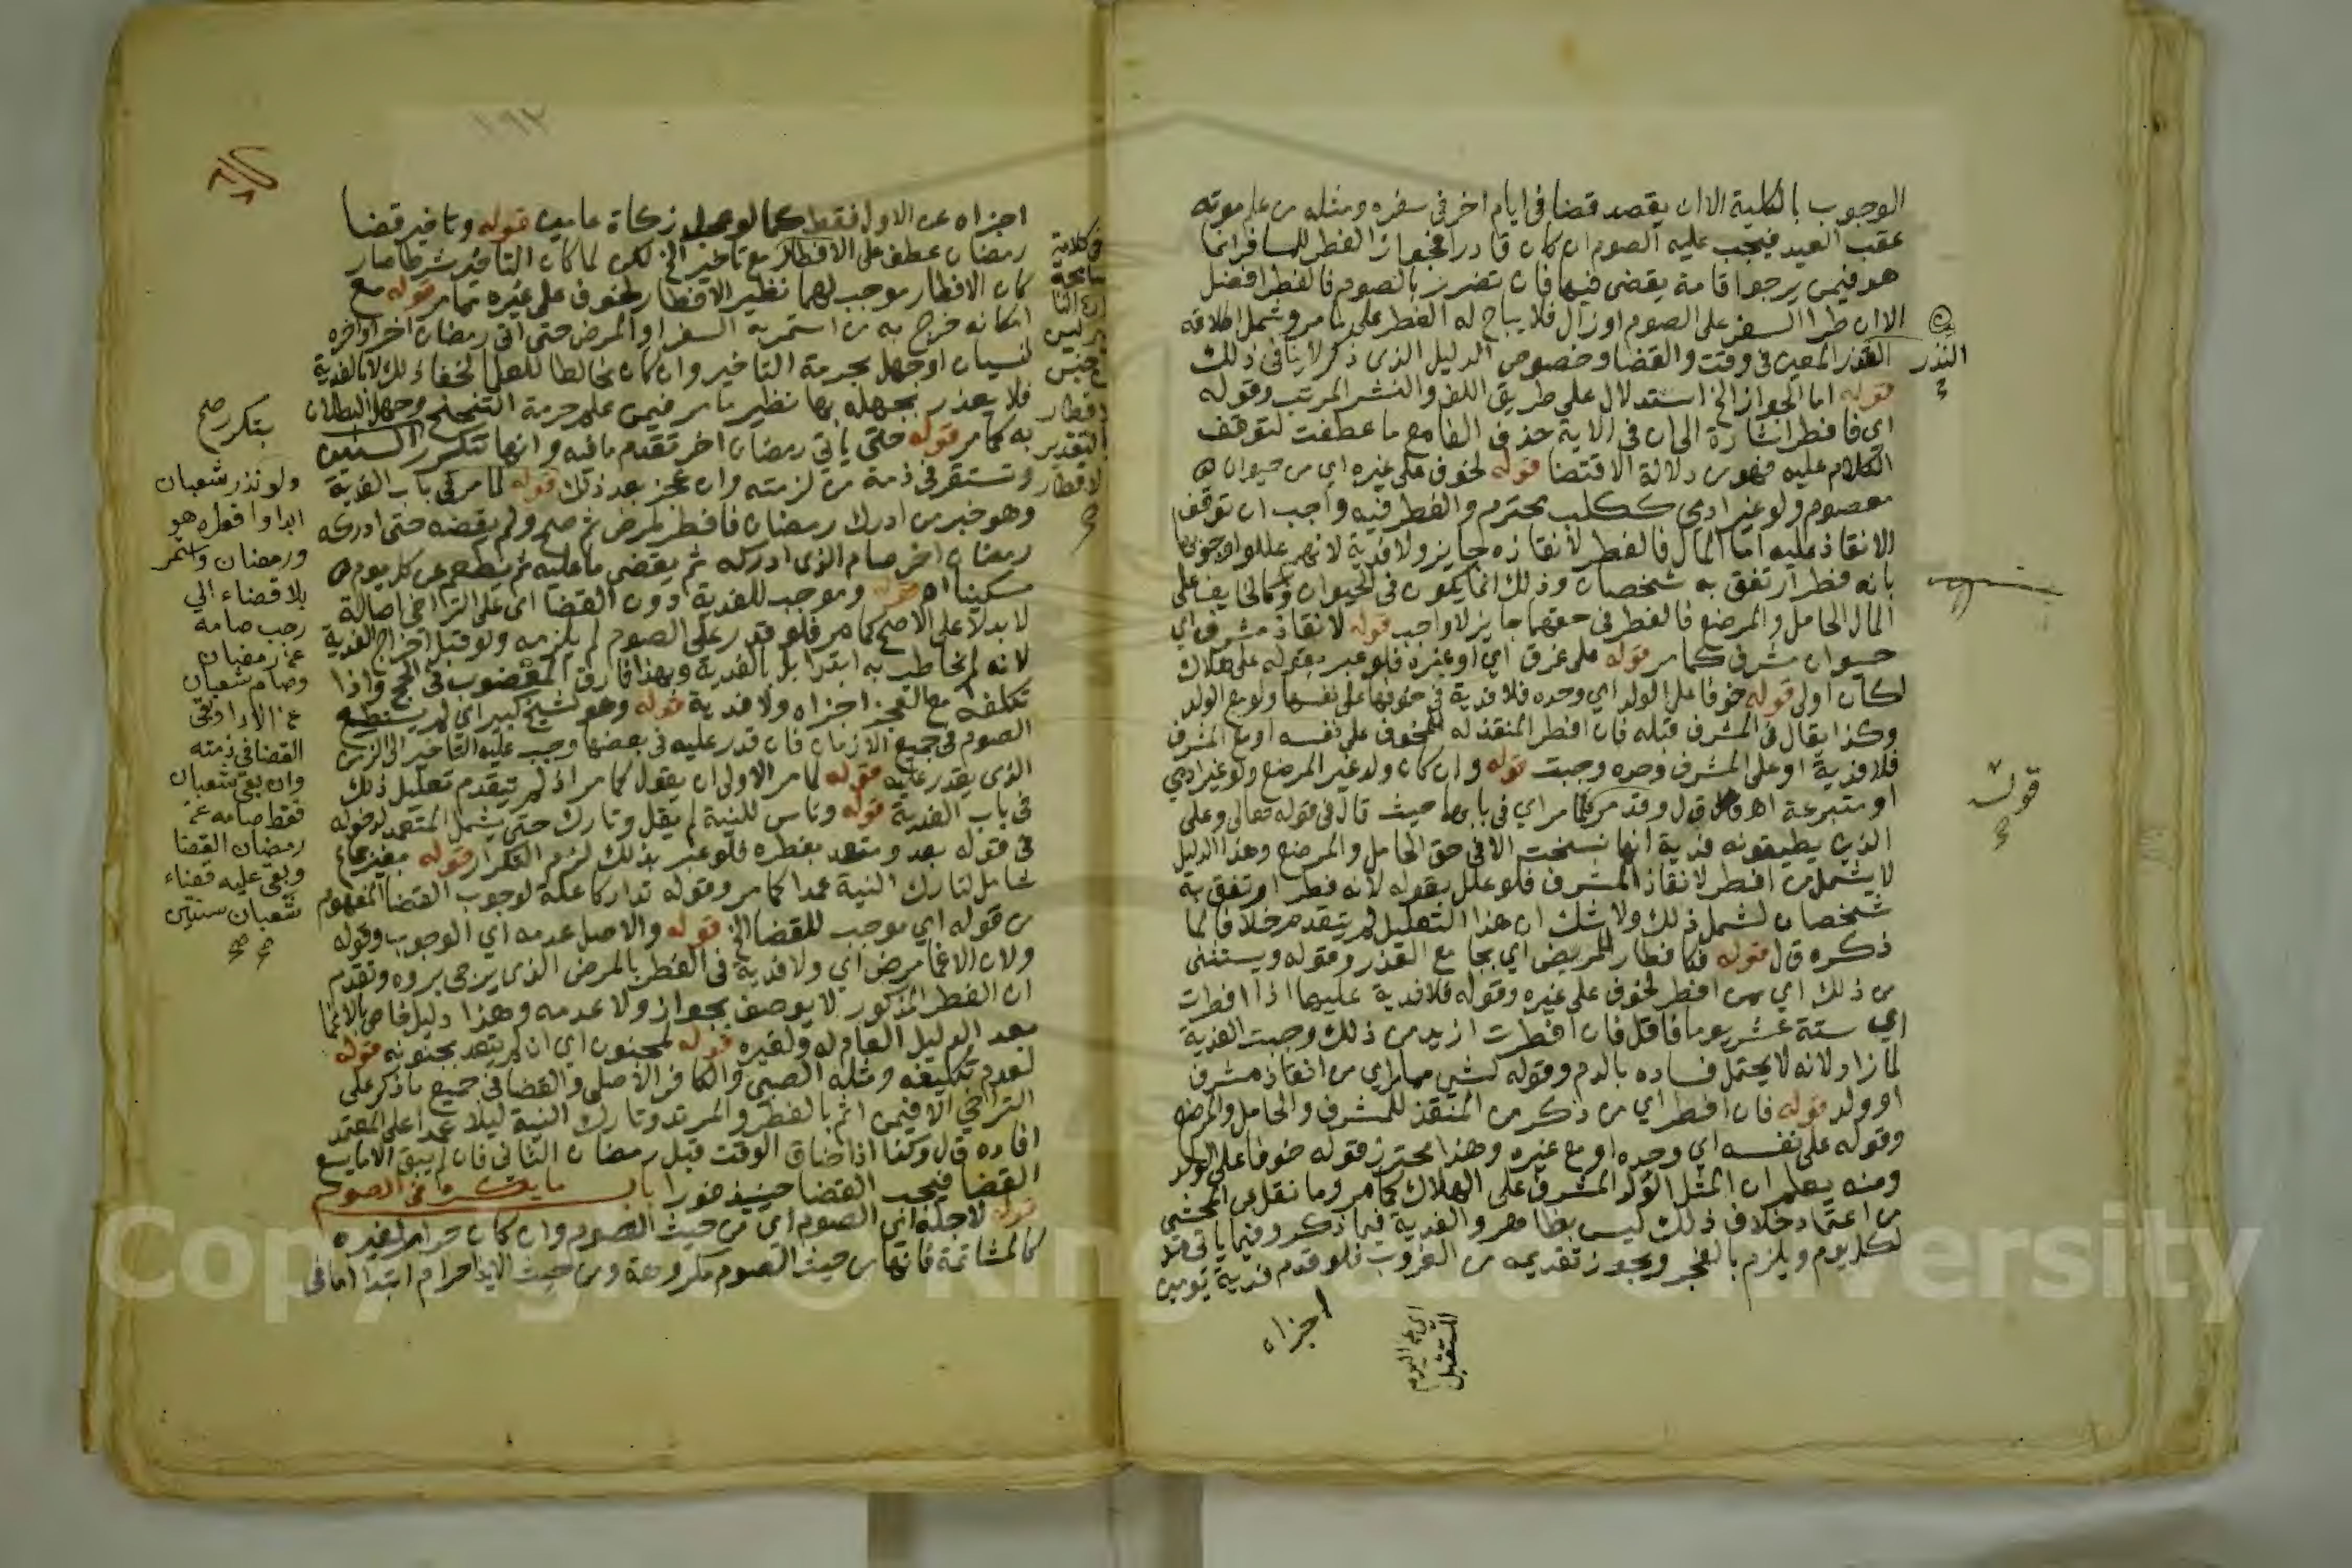 الوجوب بالكلية الا ان يقصد قضا في ايام اخر في سفره ومثله من علم موته
عقب العيد فيجب عليه الصوم ان كان قادرا فجواز الفطر للمسافر انما
هو فيمن يرجوا قامة يقضي فيها فان تضرر بالصوم فالفطر افضل
الا ان طرا السفر على الصوم او زال فلا يباح له الفطر على ما مر وشمل اطلاقه
النذر المعين في وقت والقضا وخصوص الدليل الذي ذكر لا ينافي ذلك
قوله اما الجواز الخ استدلال على طريق اللف والنشر المرتب وقوله
اي فافطر اشارة الى ان في الاية حذف الفا مع ما عطفت لتوقف
الكلام عليه فهو من دلالة الاقتضا قوله لخوف على غيره اي من حيوان
معصوم ولو غير ادمي ككلب محترم والفطر فيه واجب ان توقف
الانقاذ عليه اما المال فالفطر لانقاذه جايز ولا فدية لانهم عللوا وجوبها
بانه فطر ارتفق به شخصان وذلك انما يكون في الحيوان وكالخايف على
المال الحامل والمرضع فالفطر في حقهما جايز لا واجب قوله لانقاذ مشرف اي
حيوان مشرف كما مر قوله على غرق اي او غيره فلو عبر بقوله على هلاك
لكان اولى قوله خوفا على الولد اي وحده فلا فدية في خوفها على نفسها ولو مع الولد
وكذا يقال في المشرف قبله فان افطر المنقذ له للخوف على نفسه او مع المشرف
فلا فدية او على المشرف وحده وجبت قوله وان كان ولد غير المرضع ولو غير ادمي
او متبرعة اه ق ل وقد مر كما مر اي في بابها حيث قال في قوله تعالى وعلى
الذين يطيقونه فدية انها نسخت الا في حق الحامل والمرضع وهذا الدليل
لا يشمل من افطر لانقاذ المشرف فلو علل بقوله لانه فطر ارتفق به
شخصان لشمل ذلك ولا شك ان هذا التعليل لم يتقدم خلافا لما
ذكره ق ل قوله فكافطار المريض اي بجامع العذر وقوله ويستثنى
من ذلك اي ممن افطر لخوف على غيره وقوله فلا فدية عليها اذا افطرت
اي ستة عشر يوما فاقل فان افطرت ازيد من ذلك وجبت الفدية
لما زاد لانه لا يحتمل فساده بالدم وقوله لشي مما مر اي من انقاذ مشرف
او ولد قوله فان افطر اي من ذكر من المنقذ للمشرف والحامل والمرضع
وقوله على نفسه اي وحده او مع غيره وهذا محترز قوله خوفا على الولد
ومنه يعلم ان المثل الولد المشرف على الهلاك كما مر وما نقل عن المحشي
من اعتماد خلاف ذلك ليس بظاهر والفدية فيما ذكر وفيما ياتي مد
لكل يوم ويلزم بالفجر ويجوز تقديمه من الغروب فلو قدم فدية يومين
اجزاه
اي عن اليوم
المستقبل
النذر
قوله
١٩٢
اجزاه عن الاول فقط كما لو عجل زكاة عامين قوله وتاخير قضا
رمضان عطف على الافطار مع تاخير الخ لكن لما كان التاخير شرطا صار
كان الافطار موجب لهما نظير الافطار لخوف على غيره تمام قوله مع
امكانه خرج به من استمر به السفر او المرض حتى اتى رمضان اخر او اخره
لنسيان او جهل بحرمة التاخير وان كان مخالطا للعلما لخفاء ذلك لا بالفدية
فلا يعذر بجهله بها نظير ما مر فيمن علم حرمة التنحنح وجهل البطلان
به كما مر قوله حتى ياتي رمضان اخر تقدم ما فيه وانها تتكرر السنين
وتستقر في ذمة من لزمته وان عجز بعد ذلك قوله لما مر في باب الفدية
وهو خبر من ادرك رمضان فافطر لمرض ثم صح ولم يقضه حتى ادركه
رمضان اخر صام الذي ادركه ثم يقضي ما عليه ثم يطعم عن كل يوم
مسكينا اه قوله وموجب للفدية دون القضا اي على التراخي اصالة
لا بدلا على الاصح كما مر فلو قدر على الصوم لم يلزمه ولو قبل اخراج الفدية
لانه لم يخاطب به ابتدا بل بالفدية وبهذا فارق المعضوب في الحج واذا
تكلفه مع العجز اجزاه ولا فدية قوله وهو لشيخ كبير اي لم يستطع
الصوم في جميع الازمان فان قدر عليه في بعضها وجب عليه التاخير الى الزمن
الذي يقدر عليه قوله لما مر الاولى ان يقول كما مر اذ لم يتقدم تعليل ذلك
في باب الفدية قوله وناس للنية لم يقل وتارك حتى يشمل المتعمد لدخوله
في قوله بعد ومتعمد بفطره فلو عبر بذلك لزم التكرار قوله بغير جماع
شامل لتارك النية عمدا كما مر وقوله تداركا علة لوجوب القضا المفهوم
من قوله اي موجب للقضا الخ قوله والاصل عدمه اي الوجوب وقوله
ولان الاغما مرض اي ولا فدية في الفطر بالمرض الذي يرجى بروه وتقدم
ان الفطر المذكور لا يوصف بجواز ولا عدمه وهذا دليل خاص بالاغما
بعد الدليل العام له ولغيره قوله لمجنون اي ان لم يتعد بجنونه قوله
لعدم تكليفه ومثله الصبي والكافر الاصلي والقضا في جميع ما ذكر على
التراخي الا فيمن اثم بالفطر والمرتد وتارك النية ليلا عمدا على المعتمد
افاده ق ل وكذا اذا ضاق الوقت قبل رمضان الثاني فان لم يبق الا ما يسع
القضا فيجب القضا حينئذ فورا باب ما يكره في الصوم
قوله لاجله اي الصوم اي من حيث الصوم وان كان حراما لغيره
كالمشاتمة فانها من حيث الصوم مكروهة ومن حيث الايذا حرام ابتدا اما في
بتكرر صح
ولو نذر شعبان
ابدا وافطره هو
ورمضان واستمر
بلا قضاء الي
رجب صامه
عن رمضان
وصام شعبان
عن الاداء وبقي
القضا في ذمته
وان بقي شعبان
فقط صامه عن
رمضان القضا
وبقي عليه قضاء
شعبان سنتين